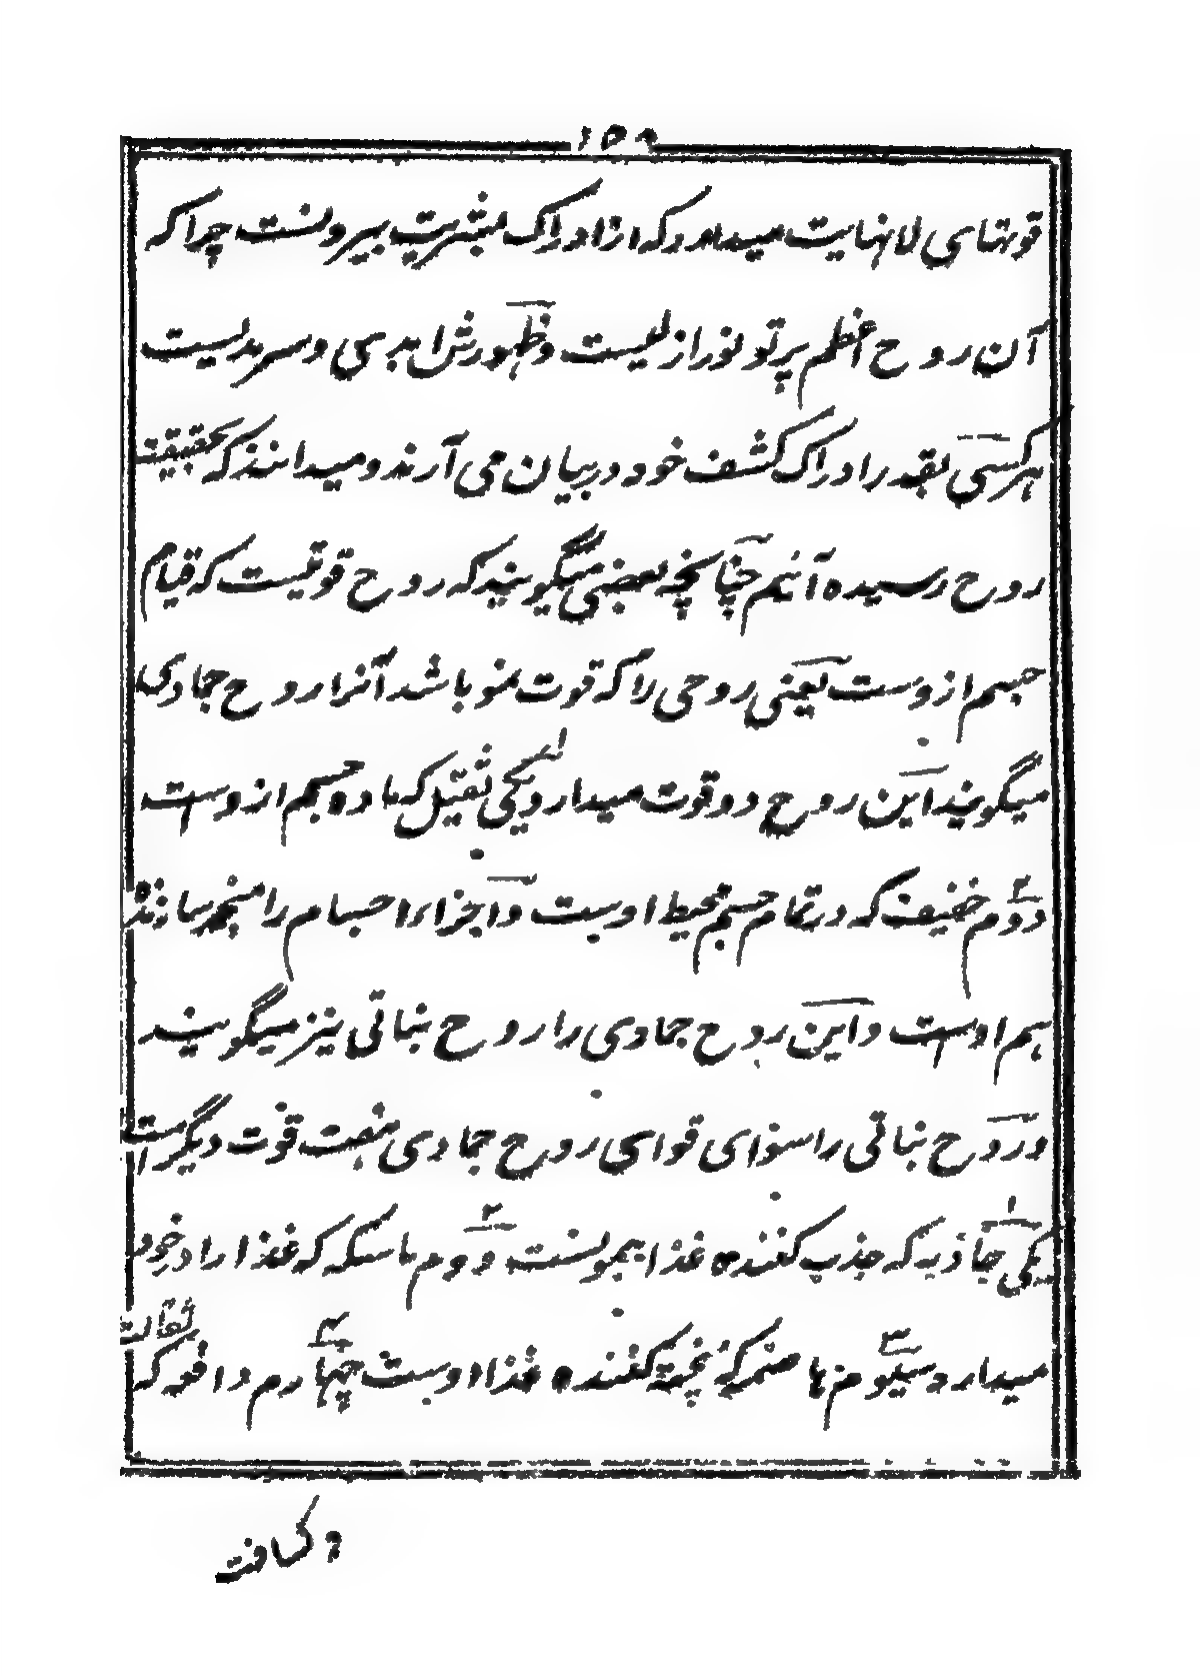 ۱۵۸
قوتهای لانهایت میدارد که از ادراک بشریت بیرونست چرا که
آن روح اعظم پرتو نور ازلیست و ظهورش ابدی و سرمدلیست
هر کسی بقدر ادراک کشف خود در بیان می آرند و میدانند که بحقیقت
روح رسیده آئیم چنانچه بعضی میگویند که روح قوتیست که قیام
جسم ازوست یعنی روحی را که قوت نمو باشد آنرا روح جمادی
میگویند این روح دو قوت میدارد یکی ثقیل که ماده جسم ازوست
دوم خفیف که در تمام جسم محیط اوست و اجزاء اجسام را منجمد سازنده
هم اوست و این روح جمادی را روح نباتی نیز میگویند
و روح نباتی را سوای قوای روح جمادی هفت قوت دیگر است
یکی جاذبه که جذب کننده غذا بمونست دوم ماسکه که غذا را در خود
میدارد سیوم هاضمه که پخته کننده غذا اوست چهارم دافعه که ثقالت
و کثافت